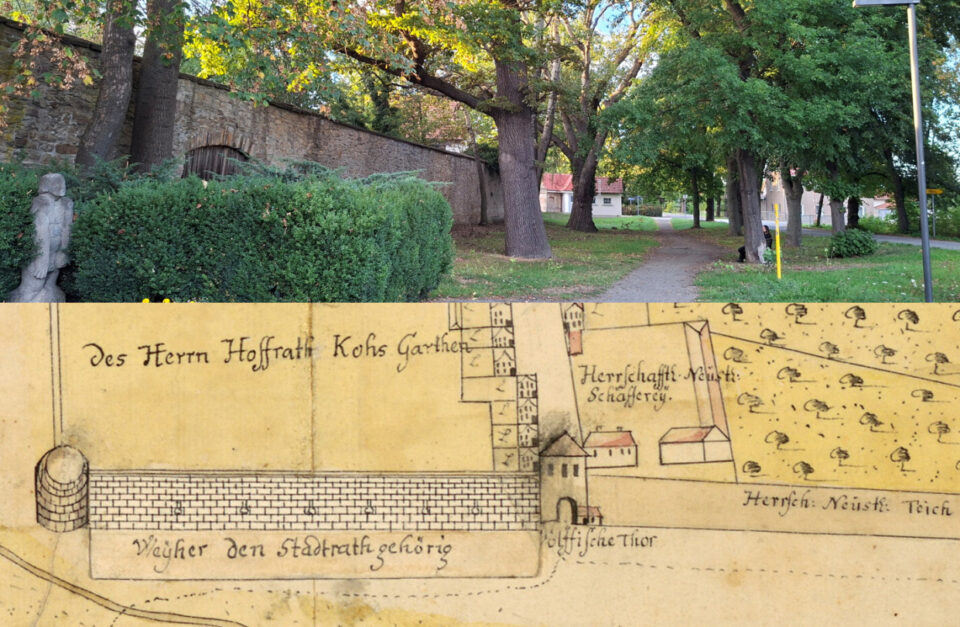 des Herrn Hoffrath Kohs Garthen
Herrschafftl. Neüstl:
Schäfferey.
Herrsch: Neüstl: Teich
Weÿher den Stadtrath gehörig
ölffische Thor